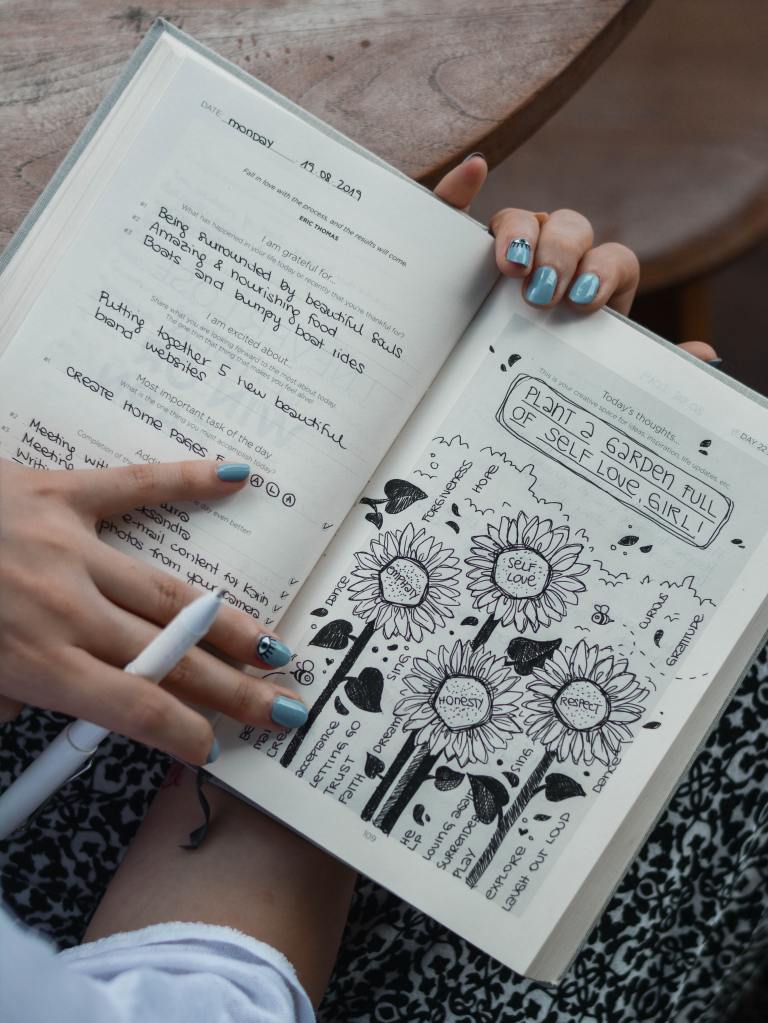 DATE monday 19.08.2019
Fall in love with the process, and the results will come.
ERIC THOMAS
I am grateful for...
What has happened in your life today or recently that you're thankful for?
#1 Being surrounded by beautiful souls
#2 Amazing & nourishing food
#3 Boats and bumpy boat rides
I am excited about...
Share what you are looking forward to the most about today.
The one thing that makes you feel alive!
Putting together 5 new beautiful
brand websites
Most important task of the day
What is the one thing you must accomplish today?
#1 CREATE HOME PAGES
A L A
#2 Meeting with
#3 Meeting
day even better!
e-mail content for
photos from your camera
DAY 22
Today's thoughts...
This is your creative space for ideas, inspiration, life updates, etc.
PLANT A GARDEN FULL
OF SELF LOVE, GIRL!
FORGIVENESS
HOPE
EMPATHY
SELF
LOVE
DANCE
CURIOUS
GRATITUDE
SING
HONESTY
RESPECT
DREAM
SING
DANCE
ACCEPTANCE
LETTING GO
TRUST
FAITH
HELP
LOVING
SURRENDER
PLAY
EXPLORE
LAUGH OUT LOUD
109